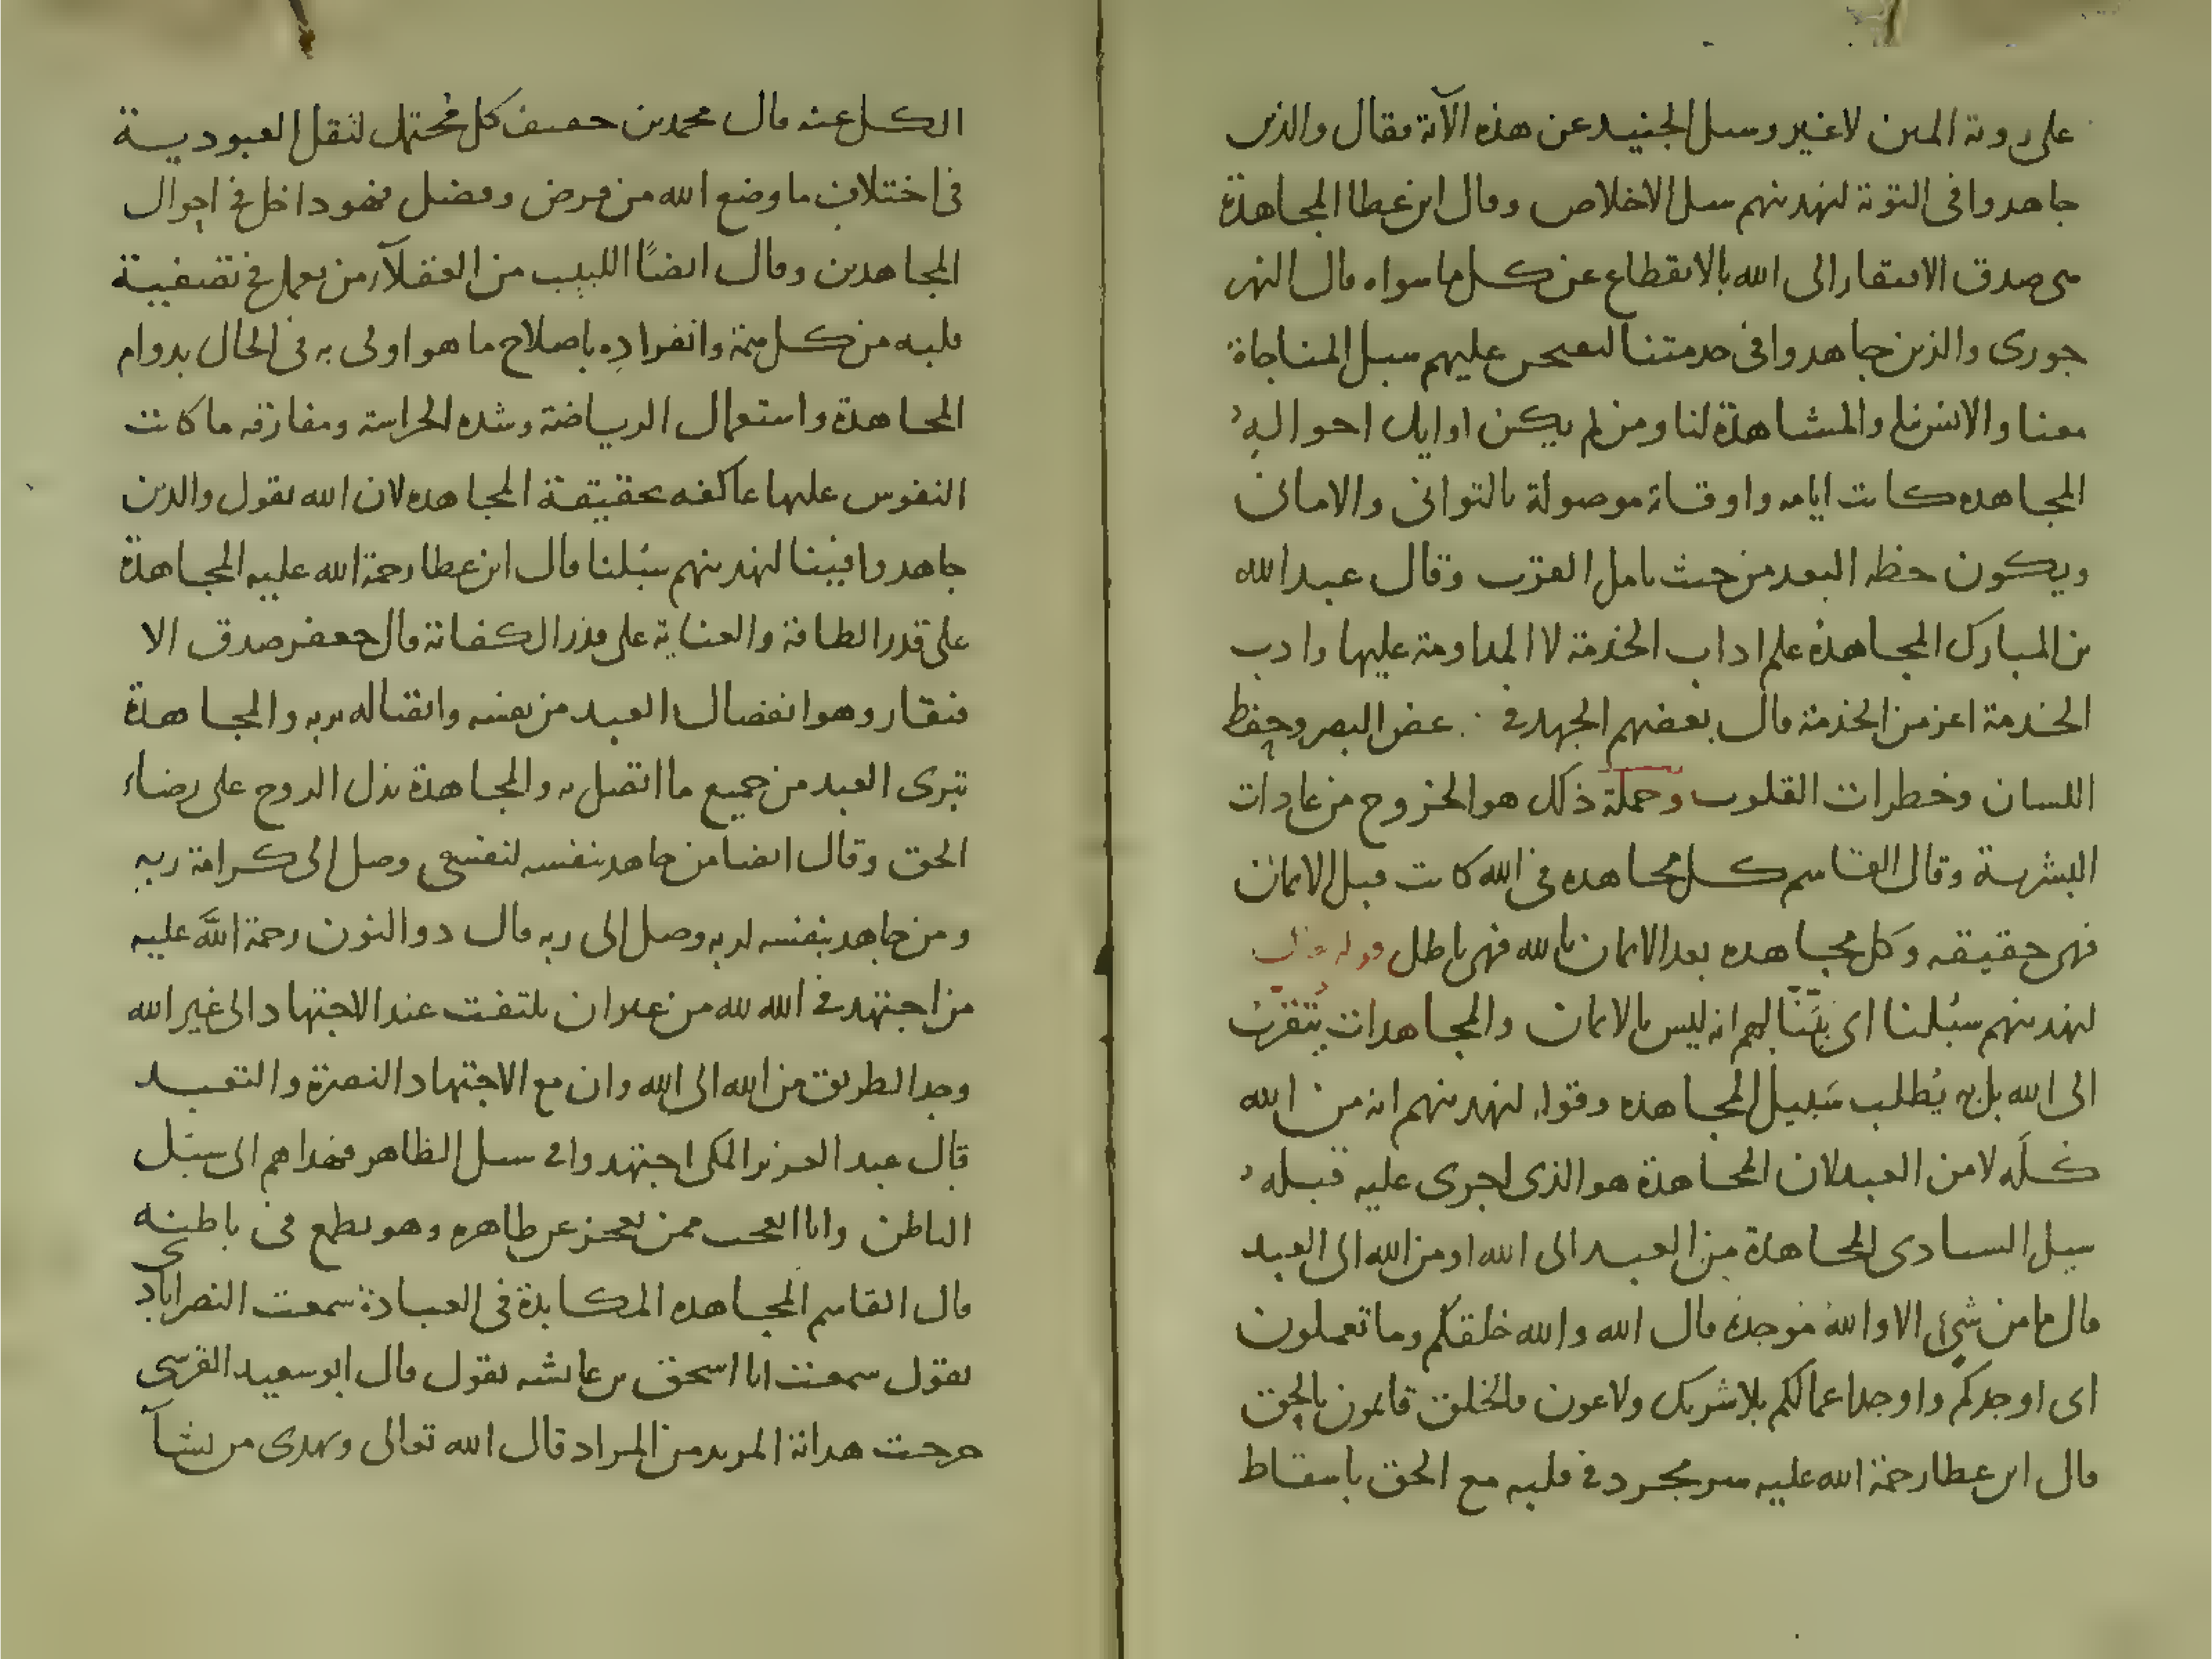 على روية المنن لا غير وسيل الجنيد عن هذه الآية فقال والذين
جاهدوا فى التوبة لنهدينهم سبل الاخلاص وقال ابن عطا المجاهدة
هى صدق الافتقار الى الله بالانقطاع عن كل ما سواه قال النهر
جورى والذين جاهدوا فى خدمتنا لنفتحن عليهم سبل المناجاة
معنا والانس بنا والمشاهدة لنا ومن لم يكن اوايل احواله
المجاهده كانت ايامه واوقاته موصولة بالتوانى والامانى
ويكون حظه البعد من حيث يامل القرب وقال عبد الله
بن المبارك المجاهدة علم اداب الخدمة لا المداومة عليها وادب
الخدمة اعز من الخدمة قال بعضهم الجهد فى غض البصر وحفظ
اللسان وخطرات القلوب وجملة ذلك هو الخروج من عادات
البشرية وقال القاسم كل مجاهده فى الله كانت قبل الايمان
فهى حقيقه وكل مجاهده بعد الايمان بالله فهى باطل قوله تعالى
لنهدينهم سُبلنا اى بيَّنَّا لهم انه ليس بالايمان والمجاهدات يُتقرب
الى الله بل به يُطلب سَبيل المجاهده وقوله لنهدينهم انه من الله
كله لا من العبد لان المجاهدة هو الذى اجرى عليه قبله
سيل السيادى المجاهدة من العبد الى الله او من الله الى العبد
قال ما من شئ الا والله موجده قال الله والله خلقكم وما تعملون
اى اوجدكم واوجد اعمالكم بلا شريك ولا عون فالخلق قايمون بالحق
قال ابن عطا رحمة الله عليه سر مجرد فى قلبه مع الحق باسقاط
الكل عنه قال محمد بن خفيف كل مُحتمل لثقل العبودية
فى اختلاف ما وضع الله من فرض وفضل فهو داخل فى احوال
المجاهدين وقال ايضًا اللبيب من العقلآء من يعمل فى تصفية
قلبه من كل همة وانفراده باصلاح ما هو اولى به فى الحال بدوام
المجاهدة واستعمال الرياضة وشده الحراسة ومفارقه ما كانت
النفوس عليها عاكفه بحقيقة المجاهده لان الله يقول والذين
جاهدوا فينا لنهدينهم سُبلنا قال ابن عطا رحمة الله عليه المجاهدة
على قدر الطاقة والعناية على قدر الكفاية قال جعفر صدق الا
فتقار وهو انفصال العبد من نفسه واتصاله بربه والمجاهدة
تبرى العبد من جميع ما اتصل به والمجاهدة بذل الروح على رضاء
الحق وقال ايضا من جاهد بنفسه لنفسه وصل الى كرامة ربه
ومن جاهد بنفسه لربه وصل الى ربه قال ذو النون رحمة الله عليه
من اجتهد فى الله لله من غير ان يلتفت عند الاجتهاد الى غير الله
وجد الطريق من الله الى الله وان مع الاجتهاد النصرة والتعبد
قال عبد العزيز المكى اجتهدوا فى سبل الظاهر فهداهم الى سبل
الباطن وانا اعجب ممن يعجز عن ظاهره وهو يطمع فى باطنه
قال القاسم المجاهده المكابدة فى العبادة سمعت النصراباذى
يقول سمعت ابا اسحق بن عايشه يقول قال ابو سعيد القرشى
خرجت هداية المريد من المراد قال الله تعالى ويهدى من يشآ